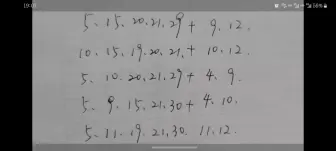 19:01
56%
5、15、20、21、29 + 9、12、
10、15、19、20、21、+ 10、12、
5、10、20、21、29 + 4、9、
5、9、15、21、30 + 4、10、
5、11、19、21、30、11、12、